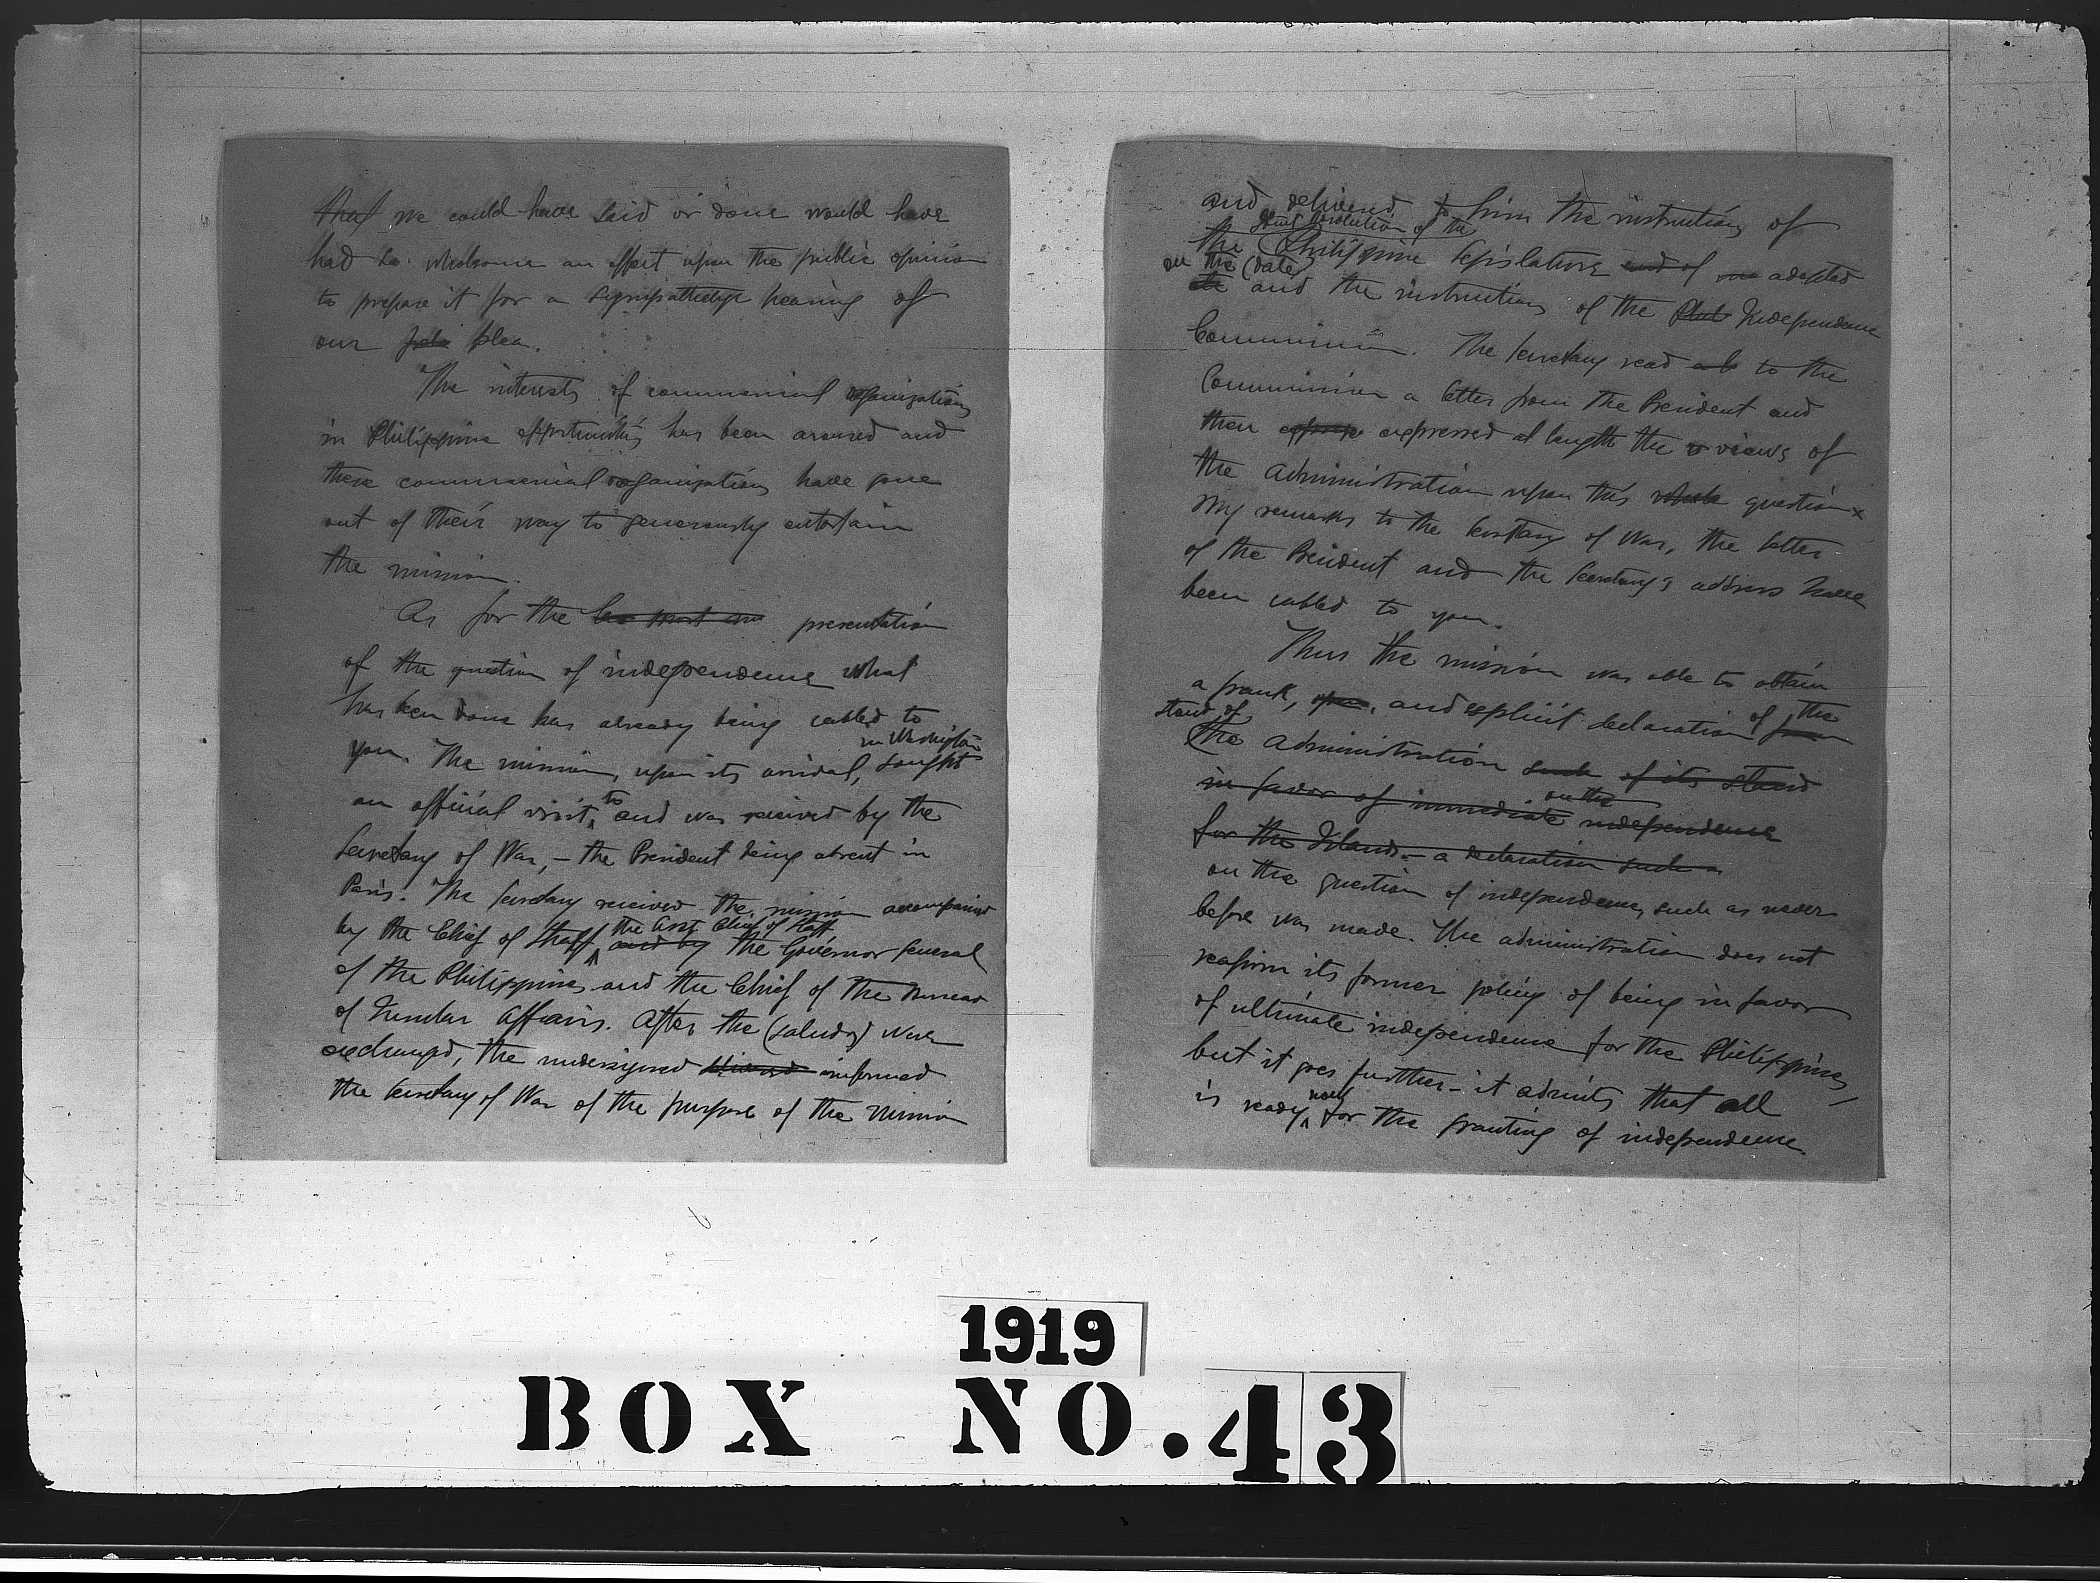 that we could have said or done would have
had so wholesome an effect upon the public opinion
to prepare it for a sympathetic hearing of
our plea.
The interests of commercial organizations
in Philippine opportunities has been aroused and
these commercial organizations have gone
out of their way to generously entertain
the mission.
As for the presentation
of the question of independence what
has been done has already being cabled to
you. The mission, upon its arrival, in Washington sought
an official visit, to and was received by the
Secretary of War, – the President being absent in
Paris. The Secretary received the mission accompanied
by the Chief of Staff, the Asst Chief of Staff and by the Governor General
of the Philippines and the Chief of the Bureau
of Insular Affairs. After the (saludos) were
exchanged, the undersigned informed
the Secretary of War of the purpose of the mission
and delivered to him the instructions of
the Joint Resolution of the Philippine Legislature and of adopted
on the (date) and the instructions of the Phil Independence
Commission. The Secretary read to the
Commission a letter from the President and
then expressed at length the views of
the Administration upon this whole question
My remarks to the Secretary of War, the letter
of the President and the Secretary's address have
been cabled to you.
Thus the mission was able to obtain
a frank, open, and explicit declaration of the from
stand of
the Administration such of its stand
in favor of immediate on the independence
for the Islands – a declaration such
on the question of independence, such as never
before was made. The administration does not
reafirm its former policy of being in favor
of ultimate independence for the Philippines,
but it goes further – it admits that all
is ready now for the granting of independence.
1919
BOX NO. 43